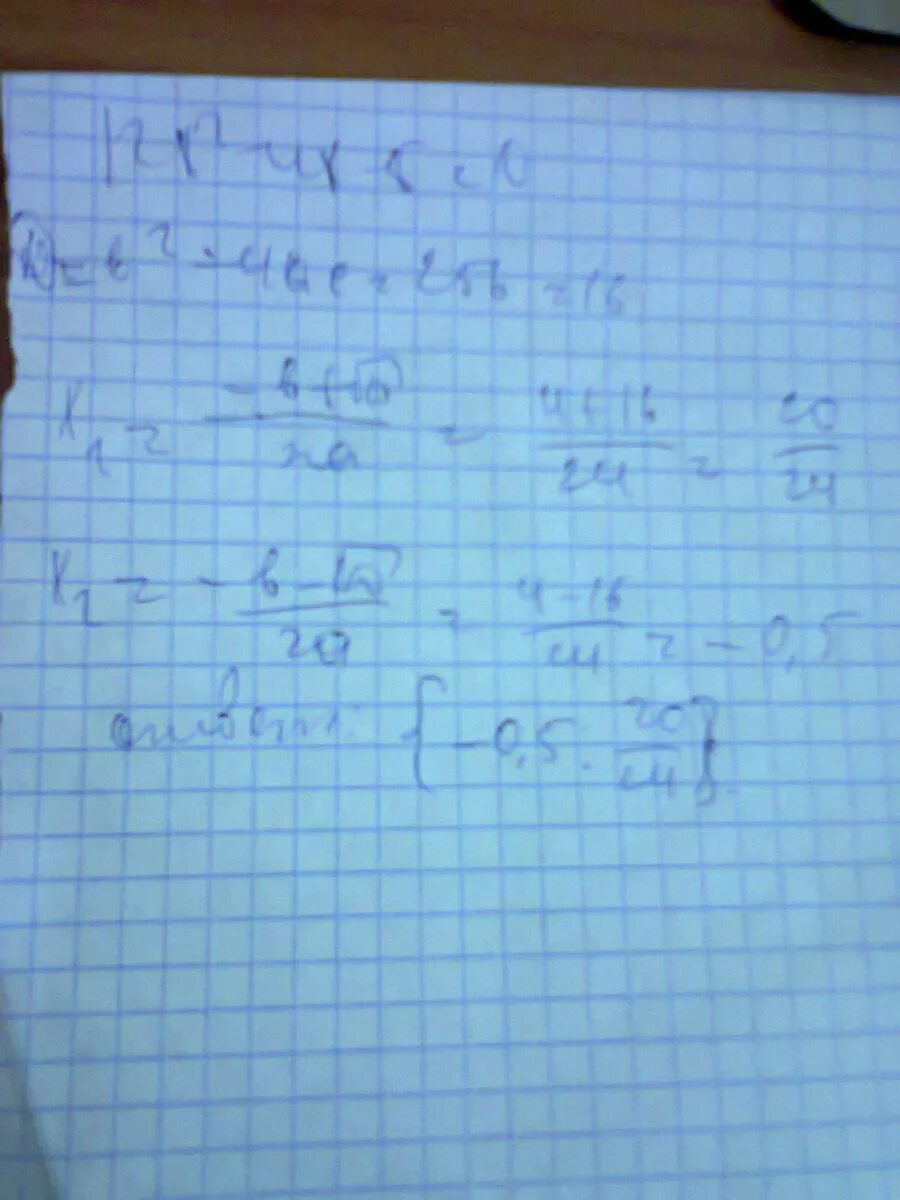 12x² - 4x - 5 = 0
D = b² - 4ac = 256 = 16
x₁ = (-b + √D) / 2a = (4 + 16) / 24 = 20/24
x₂ = (-b - √D) / 2a = (4 - 16) / 24 = -0,5
ответ: {-0,5. 20/24}.